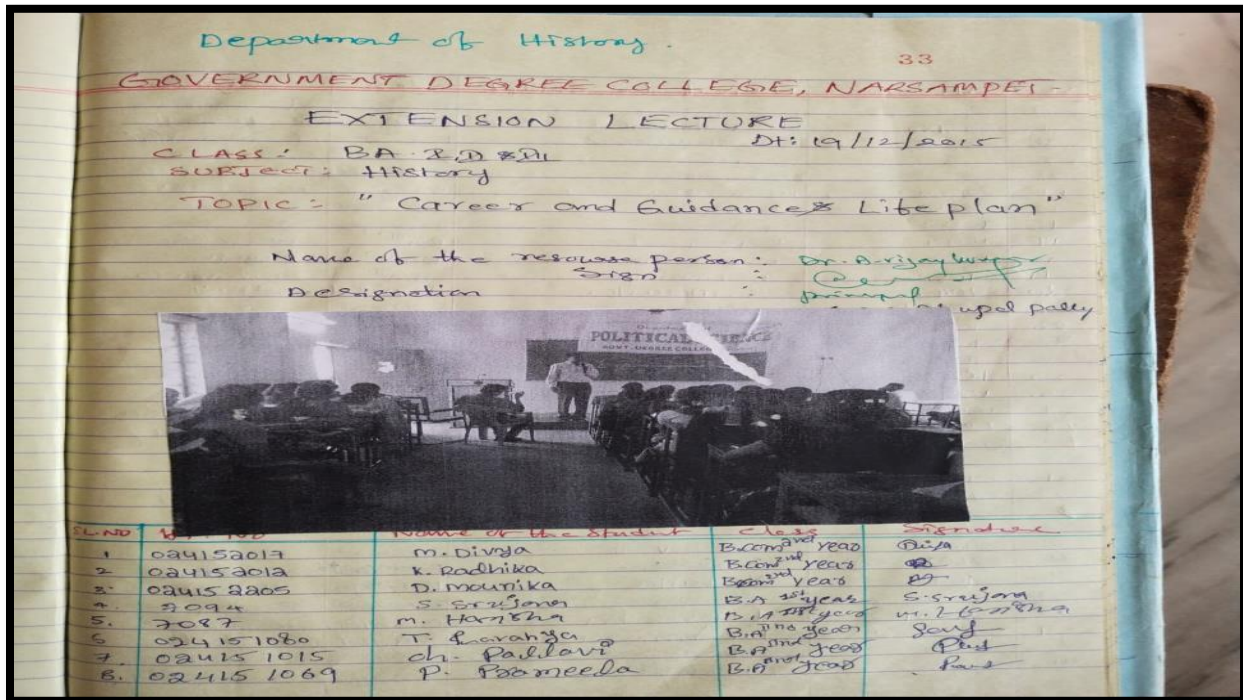 Department of History.
33
GOVERNMENT DEGREE COLLEGE, NARSAMPET.
EXTENSION LECTURE
Dt: 19/12/2015
CLASS: BA
SUBJECT: History
TOPIC: " Career and Guidance & Life plan"
Name of the resourse person: Dr.
Sign :
Designation : principal
POLITICAL
GOVT. DEGREE COLLEGE
SL.NO Name of the Student Class Signature
1 024152017 M. Divya B.com 2nd year
2 024152012 K. Radhika B.com 2nd year
3 024152205 D. Mounika B.com 2nd year
4. 7094 S. Srujana B.A 1st year S. Srujana
5. 7087 M. Harisha B.A 1st year M. Harisha
6 024151080 T. B.A IInd year
7. 024151015 ch. Pallavi B.A IInd year
8. 024151069 P. Prameela B.A IInd year